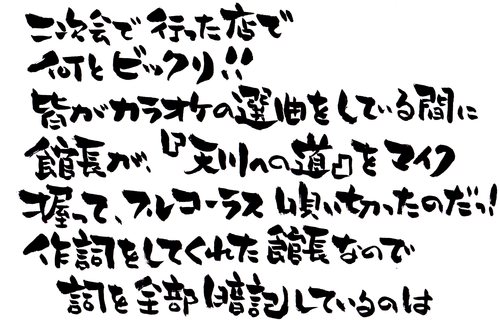 二次会で行った店で
何とビックリ!!
皆がカラオケの選曲をしている間に
館長が、『天川への道』をマイク
握って、フルコーラス唄い切ったのだっ!
作詞をしてくれた館長なので
詞を全部暗記しているのは